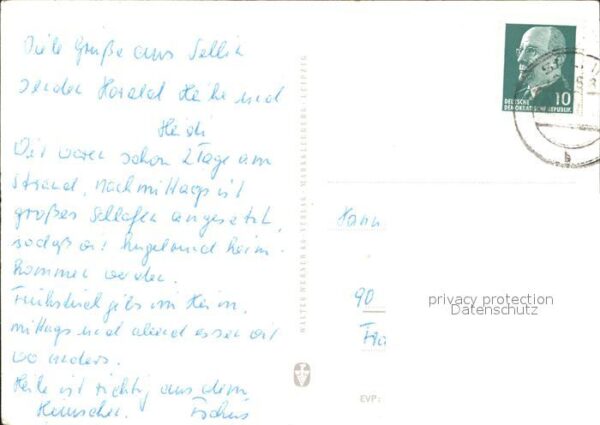 Viele Grüße aus Sellin
senden Harald Heike und
Heidi
Wir waren schon 2 Tage am
Strand, nachmittags ist
großes Schlafen angesetzt,
sodaß wir ausgeruht heim-
kommen werden.
Frühstück gibs im Heim,
mittags und abend essen wir
wo anders.
Heike ist richtig aus dem
Fochus
WALTER WERNER KG · VERLAG · MARKKLEEBERG · LEIPZIG
DEUTSCHE
DEMOKRATISCHE REPUBLIK
10
b
Hann
90
privacy protection
Datenschutz
EVP: